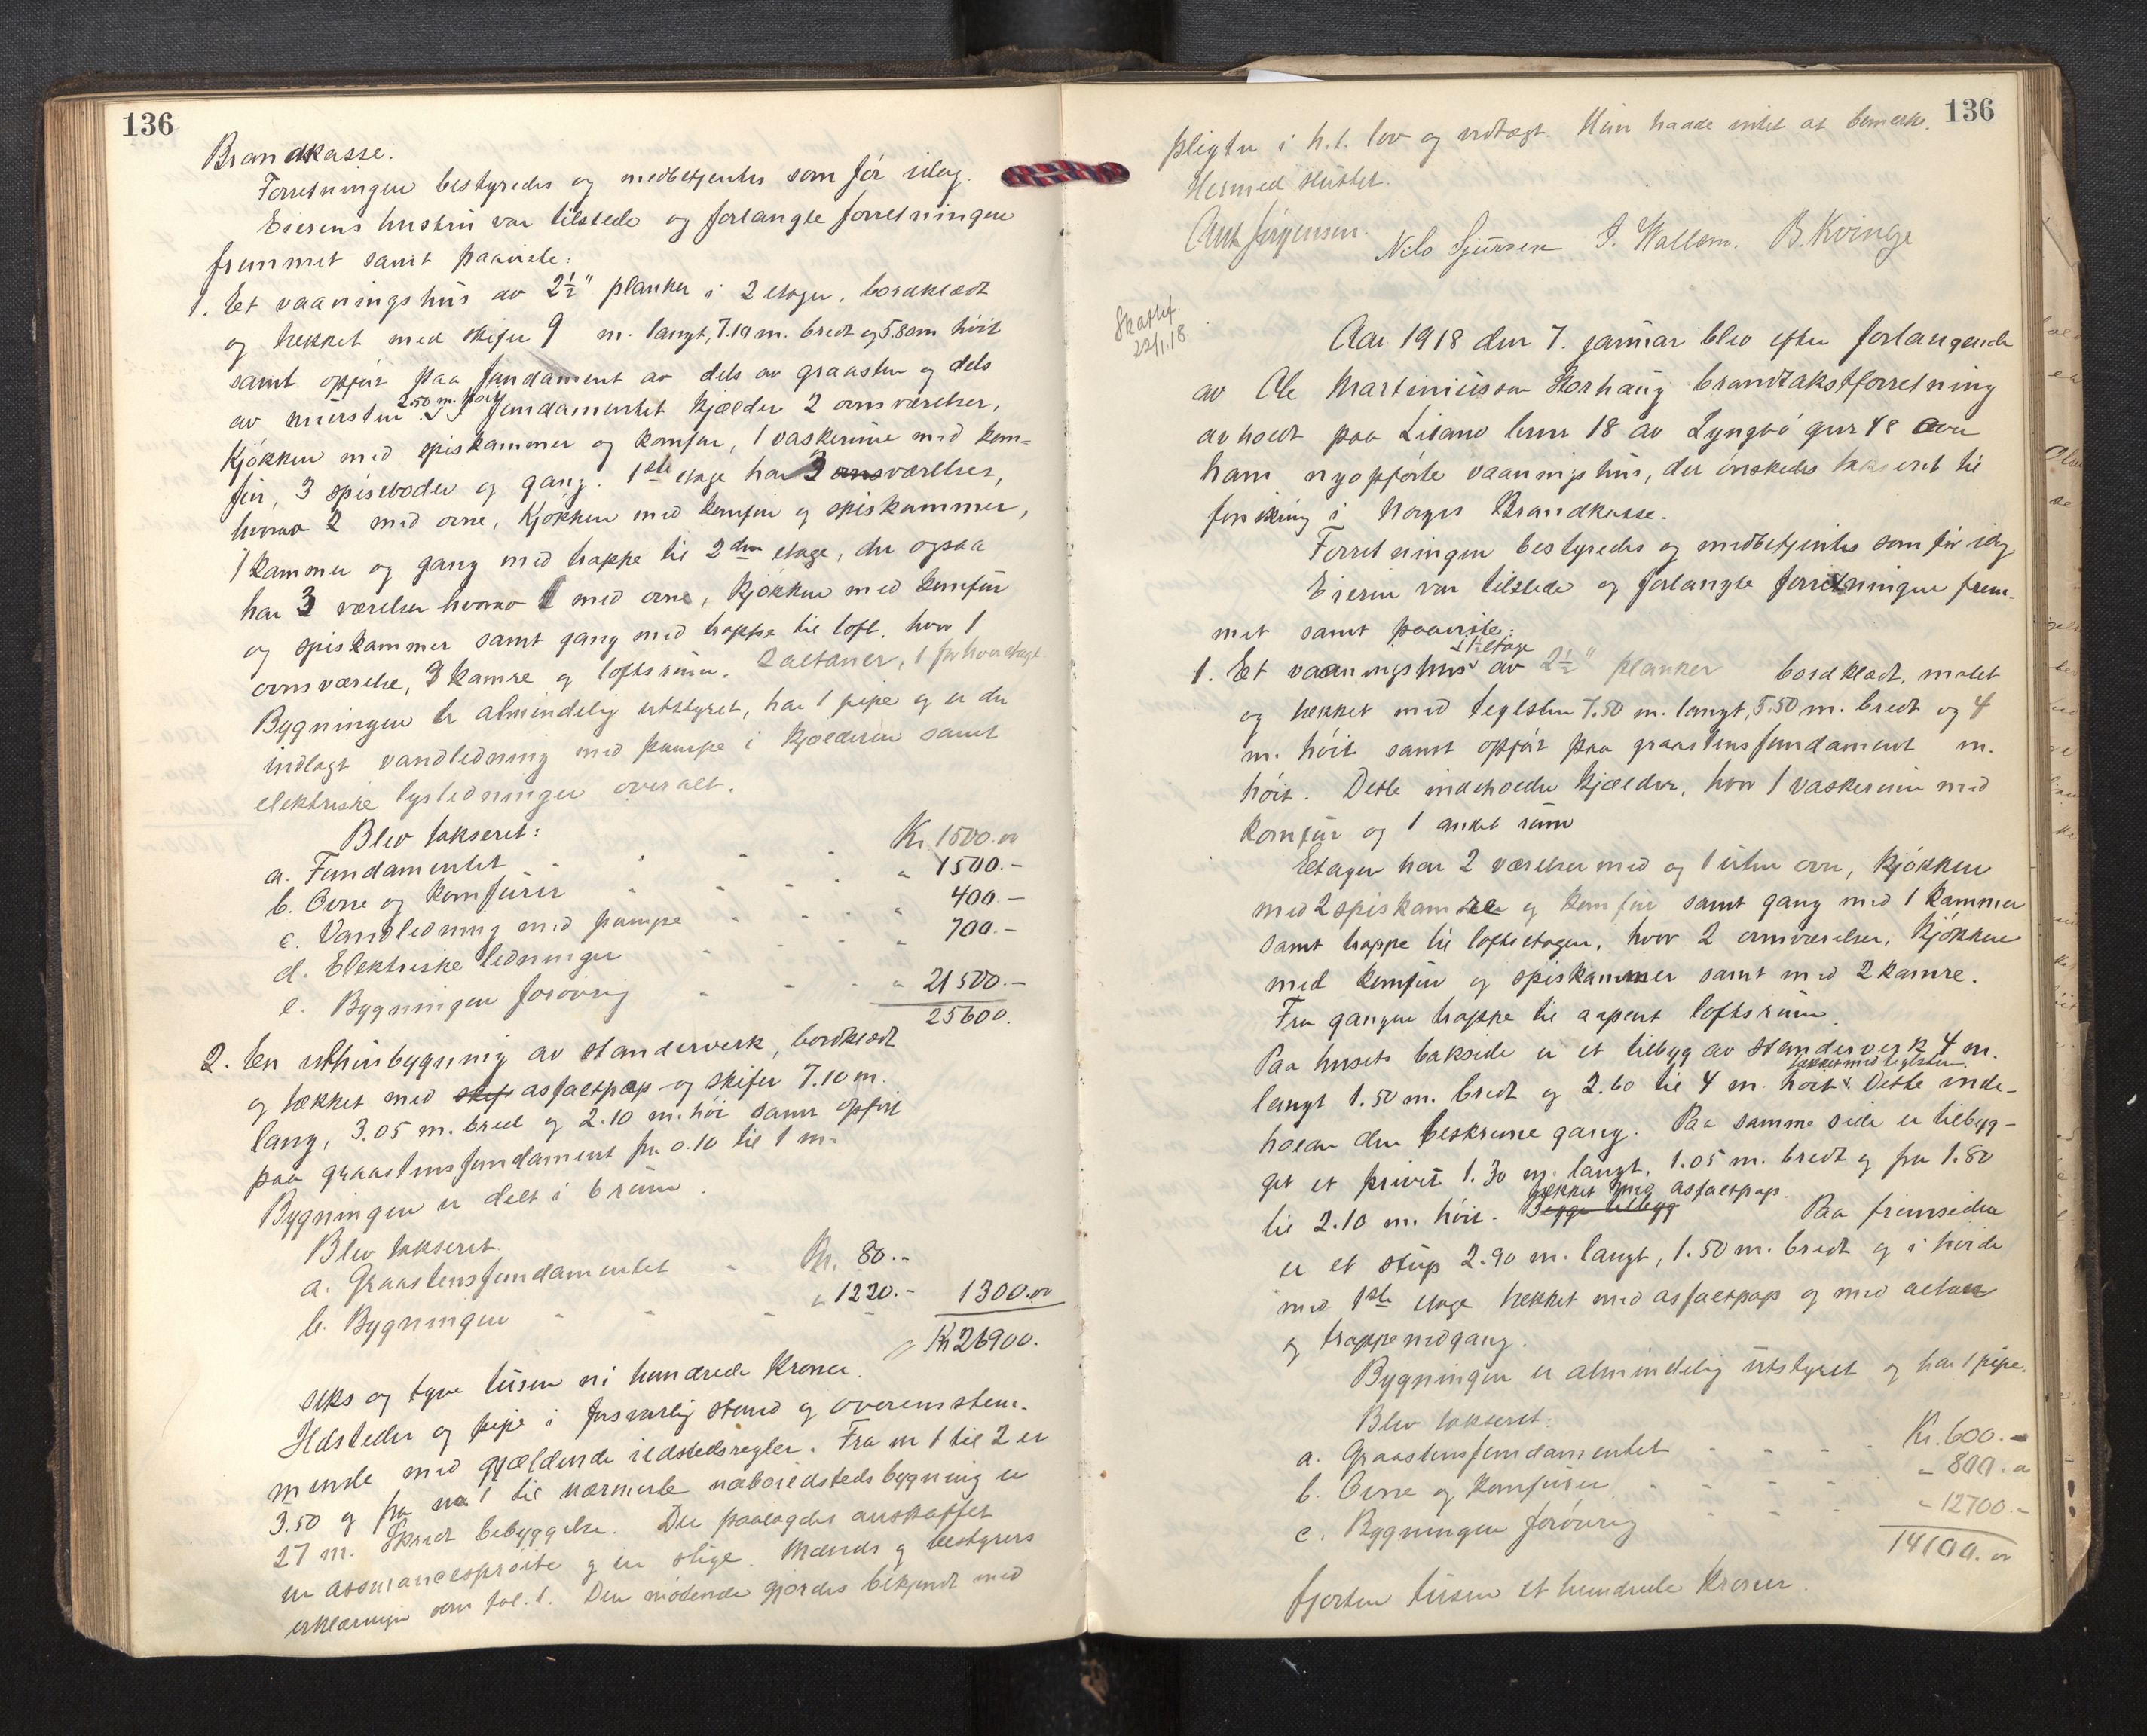 136
Brandkasse.
Forretningen bestyredes og medbetjentes som før idag.
Eierens hustru var tilstede og forlangte forretningen
fremmet samt paaviste:
1. Et vaaningshus av 2½" planker i 2 etager, bordklædt
og tækket med skifer 9 m. langt, 7.10 m. bredt og 5.80 m høit
samt opført paa fundament av dels av graasten og dels
av mursten 2.50 m. høit. I fundamentet kjælder 2 ovnsværelser,
kjøkken med spiskammer og komfur, 1 vaskerum med kom-
fur, 3 spiseboder og gang. 1ste etage har 3 ovnsværelser,
hvorav 2 med ovne, kjøkken med komfur og spiskammer,
1 kammer og gang med trappe til 2den etage, der ogsaa
har 3 værelser hvorav 1 med ovne, kjøkken med komfur
og spiskammer samt gang med trappe til loft, hvor 1
ovnsværelse, 3 kamre og loftsrum. 2 altaner, 1 for hver etage
Bygningen er almindelig utstyret, har 1 pipe og er der
indlagt vandledning med pumpe i kjælderen samt
elektriske lysledninger overalt.
Blev takseret:
a. Fundamentet Kr. 1500.00
b. Ovne og komfurer " 1500.-
c. Vandledning med pumpe " 400.-
d. Elektriske ledninger " 700.-
e. Bygningen forøvrig " 21500.-
25600.
2. En uthusbygning av standerverk, bordklædt
og tækket med skif asfaltpap og skifer 7.10 m.
lang, 3.05 m. bred og 2.10 m. høi samt opført
paa graastensfundament fra 0.10 til 1 m.
Bygningen er delt i 6 rum.
Blev takseret.
a. Graastensfundamentet Kr. 80.-
b. Bygningen " 1220.- 1300.00
Kr 26900.
seks og tyve tusen ni hundrede Kroner.
Ildsteder og pipe i forsvarlig stand og overensstem-
mende med gjældende ildstedsregler. Fra nr 1 til 2 er
3.50 og fra nr 1 til nærmeste naboildstedsbygning er
27 m. Spredt bebyggelse. Der paalagdes anskaffet
en assuransesprøite og en stige. Mænds og bestyrers
erklæringer som fol. 1. Den mødende gjordes bekjendt med
136
pligter i h.t. lov og vedtægt. Hun hadde intet at bemerke.
Hermed sluttet.
Nils Sjursen J. Wallem. B. Kvinge
22/1.18.
Aar 1918 den 7. januar blev efter forlangende
av Ole Martiniussen Storhaug brandtakstforretning
avholdt paa brnr 18 av Lyngbø gnr 48 over
ham nyopførte vaaningshus, der ønskedes takseret til
forsikring i Norges Brandkasse.
Forretningen bestyredes og medbetjentes som før idag
Eieren var tilstede og forlangte forretningen frem-
met samt paaviste:
1. Et vaaningshus i 1 etage av 2½" planker bordklædt, malet
og tækket med teglsten 7.50 m. langt, 5.50 m. bredt og 4
m. høit samt opført paa graastensfundament m.
høit. Dette indeholder kjælder, hvor 1 vaskerum med
komfur og 1 andet rum
Etagen har 2 værelser med og 1 uten ovn, kjøkken
med 2 spiskamre og komfur samt gang med 1 kammer
samt trappe til loftsetagen, hvor 2 ovnsværelser, kjøkken
med komfur og spiskammer samt med 2 kamre.
Fra gangen trappe til aapent loftsrum.
Paa husets bakside er et tilbyg av standerverk 4 m.
langt 1.50 m. bredt og 2.60 til 4 m. høit tækket med teglsten. Dette inde-
holder den beskrevne gang. Paa samme side er tilbyg-
get et privet 1.30 m. langt, 1.05 m. bredt og fra 1.80
til 2.10 m. høit. Begge tilbyg tækket med asfaltpap. Paa fremsiden
er et stup 2.90 m. langt, 1.50 m. bredt og i høide
med 1ste etage tækket med asfaltpap og med altan
og trappenedgang.
Bygningen er almindelig utstyret og har 1 pipe.
Blev takseret:
a. Graastensfundamentet Kr. 600.-
b. Ovne og komfurer " 800.-
c. Bygningen forøvrig " 12700.-
14100.00
fjorten tusen et hundrede Kroner.